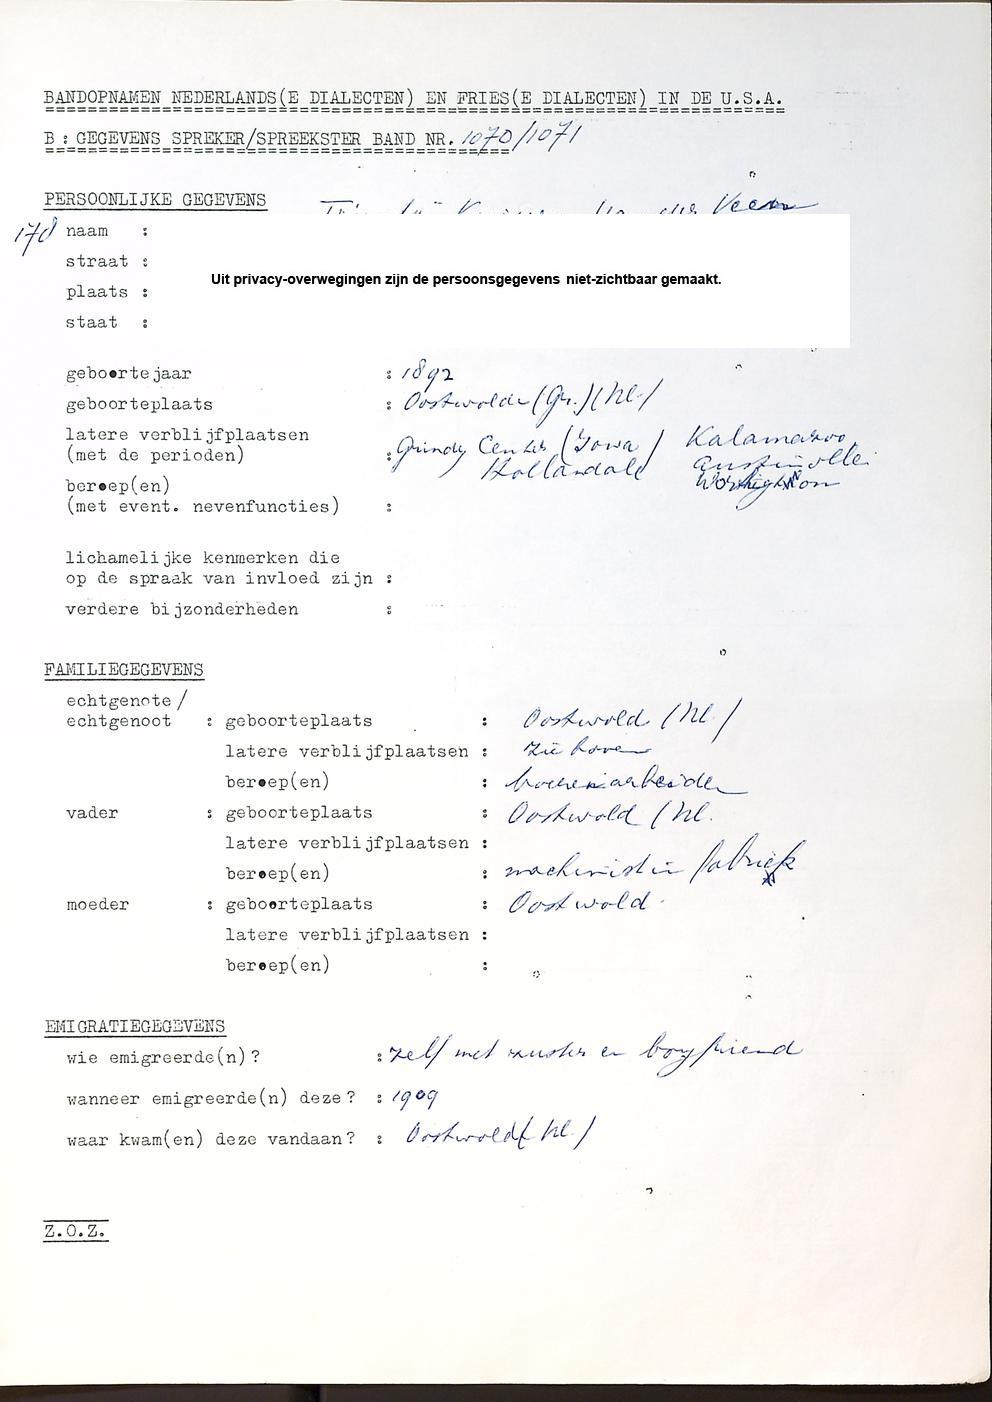 BANDOPNAMEN NEDERLANDS(E DIALECTEN) EN FRIES(E DIALECTEN) IN DE U.S.A.
B: GEGEVENS SPREKER/SPREEKSTER BAND NR. 1070/1071
PERSOONLIJKE GEGEVENS
178 naam :
straat :
plaats :
staat :
Uit privacy-overwegingen zijn de persoonsgegevens niet-zichtbaar gemaakt.
geboortejaar : 1892
geboorteplaats : Oostwolde (Gr.) (Nl.)
latere verblijfplaatsen
(met de perioden) : Grundy Center (Iowa) Kalamazoo
Hollandale Austinville
Worthington
beroep(en)
(met event. nevenfuncties) :
lichamelijke kenmerken die
op de spraak van invloed zijn :
verdere bijzonderheden :
FAMILIEGEGEVENS
echtgenote/
echtgenoot : geboorteplaats : Oostwold (Nl.)
latere verblijfplaatsen : zie boven
beroep(en) : boerenarbeider
vader : geboorteplaats : Oostwold (Nl.
latere verblijfplaatsen :
beroep(en) : machinist in fabriek
moeder : geboorteplaats : Oostwold
latere verblijfplaatsen :
beroep(en) :
EMIGRATIEGEGEVENS
wie emigreerde(n)? : zelf met zuster en boyfriend
wanneer emigreerde(n) deze? : 1909
waar kwam(en) deze vandaan? : Oostwold (Nl.)
Z.O.Z.